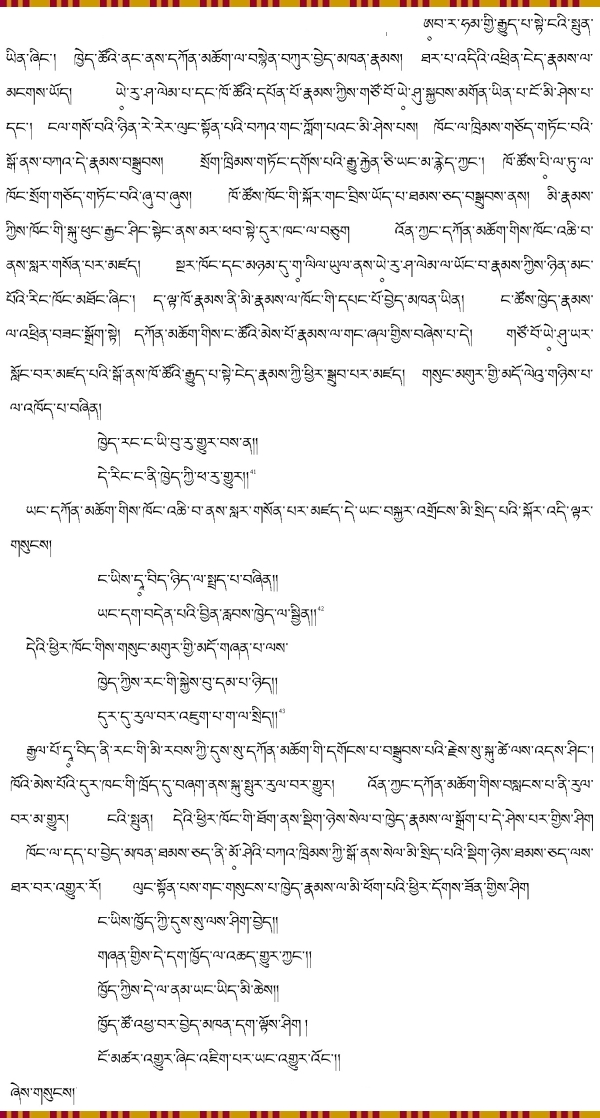 ཨབ་ར་ཧམ་གྱི་རྒྱུད་པ་སྟེ་ངའི་སྤུན་
ཡིན་ཞིང་། ཁྱེད་ཚོའི་ནང་ནས་དཀོན་མཆོག་ལ་བསྙེན་བཀུར་བྱེད་མཁན་རྣམས། ཐར་པ་འདིའི་འཕྲིན་ངེད་རྣམས་ལ་
མངགས་ཡོད། ཡེ་རུ་ཤ་ལེམ་པ་དང་ཁོ་ཚོའི་དཔོན་པོ་རྣམས་ཀྱིས་གཙོ་བོ་ཡེ་ཤུ་སྐྱབས་མགོན་ཡིན་པ་ངོ་མི་ཤེས་པ་
དང་། ངལ་གསོ་བའི་ཉིན་རེ་རེར་ལུང་སྟོན་པའི་བཀའ་གང་ཀློག་པའང་མི་ཤེས་པས། ཁོང་ལ་ཁྲིམས་གཅོད་གཏོང་བའི་
སྒོ་ནས་བཀའ་དེ་རྣམས་བསྒྲུབས། སྲོག་ཁྲིམས་གཏོང་དགོས་པའི་རྒྱུ་རྐྱེན་ཅི་ཡང་མ་རྙེད་ཀྱང་། ཁོ་ཚོས་པི་ལ་ཏུ་ལ་
ཁོང་སྲོག་གཅོད་གཏོང་བའི་ཞུ་བ་ཞུས། ཁོ་ཚོས་ཁོང་གི་སྐོར་གང་བྲིས་ཡོད་པ་ཐམས་ཅད་བསྒྲུབས་ནས། མི་རྣམས་
ཀྱིས་ཁོང་གི་སྐུ་ཕུང་རྒྱང་ཤིང་སྟེང་ནས་མར་ཕབ་སྟེ་དུར་ཁང་ལ་བཅུག འོན་ཀྱང་དཀོན་མཆོག་གིས་ཁོང་འཆི་བ་
ནས་སླར་གསོན་པར་མཛད། སྔར་ཁོང་དང་མཉམ་དུ་ག་ལིལ་ཡུལ་ནས་ཡེ་རུ་ཤ་ལེམ་ལ་ཡོང་བ་རྣམས་ཀྱིས་ཉིན་མང་
པོའི་རིང་ཁོང་མཐོང་ཞིང་། ད་ལྟ་ཁོ་རྣམས་ནི་མི་རྣམས་ལ་ཁོང་གི་དཔང་པོ་བྱེད་མཁན་ཡིན། ང་ཚོས་ཁྱེད་རྣམས་
ལ་འཕྲིན་བཟང་སྒྲོག་སྟེ། དཀོན་མཆོག་གིས་ང་ཚོའི་མེས་པོ་རྣམས་ལ་གང་ཞལ་གྱིས་བཞེས་པ་དེ། གཙོ་བོ་ཡེ་ཤུ་ཡར་
སློང་བར་མཛད་པའི་སྒོ་ནས་ཁོ་ཚོའི་རྒྱུད་པ་སྟེ་ངེད་རྣམས་ཀྱི་ཕྱིར་སྒྲུབ་པར་མཛད། གསུང་མགུར་གྱི་མདོ་ལེའུ་གཉིས་པ་
ལ་འཁོད་པ་བཞིན།
ཁྱེད་རང་ང་ཡི་བུ་རུ་གྱུར་བས་ན།།
དེ་རིང་ང་ནི་ཁྱེད་ཀྱི་ཕ་རུ་གྱུར།།41
ཡང་དཀོན་མཆོག་གིས་ཁོང་འཆི་བ་ནས་སླར་གསོན་པར་མཛད་དེ་ཡང་བསྐྱར་འགྲོངས་མི་སྲིད་པའི་སྐོར་འདི་ལྟར་
གསུངས།
ང་ཡིས་དཱ་བིད་ཉིད་ལ་སྤྲད་པ་བཞིན།།
ཡང་དག་བདེན་པའི་བྱིན་རླབས་ཁྱེད་ལ་སྦྱིན།།42
དེའི་ཕྱིར་ཁོང་གིས་གསུང་མགུར་གྱི་མདོ་གཞན་པ་ལས་
ཁྱེད་ཀྱིས་རང་གི་སྐྱེས་བུ་དམ་པ་ཉིད།།
དུར་དུ་རུལ་བར་འཇུག་པ་ག་ལ་སྲིད།།43
རྒྱལ་པོ་དཱ་བིད་ནི་རང་གི་མི་རབས་ཀྱི་དུས་སུ་དཀོན་མཆོག་གི་དགོངས་པ་བསྒྲུབས་པའི་རྗེས་སུ་སྐུ་ཚེ་ལས་འདས་ཤིང་།
ཁོའི་མེས་པོའི་དུར་ཁང་གི་ཁྲོད་དུ་བཞག་ནས་སྐུ་སྤུར་རུལ་བར་གྱུར། འོན་ཀྱང་དཀོན་མཆོག་གིས་བསླངས་པ་ནི་རུལ་
བར་མ་གྱུར། ངའི་སྤུན། དེའི་ཕྱིར་ཁོང་གི་ཐོག་ནས་སྡིག་ཉེས་སེལ་བ་ཁྱེད་རྣམས་ལ་སྒྲོག་པ་དེ་ཤེས་པར་གྱིས་ཤིག
ཁོང་ལ་དད་པ་བྱེད་མཁན་ཐམས་ཅད་ནི་མོ་ཤེའི་བཀའ་ཁྲིམས་ཀྱི་སྒོ་ནས་སེལ་མི་སྲིད་པའི་སྡིག་ཉེས་ཐམས་ཅད་ལས་
ཐར་བར་འགྱུར་རོ། ལུང་སྟོན་པས་གང་གསུངས་པ་ཁྱེད་རྣམས་ལ་མི་ཕོག་པའི་ཕྱིར་དོགས་ཟོན་གྱིས་ཤིག
ང་ཡིས་ཁྱོད་ཀྱི་དུས་སུ་ལས་ཤིག་བྱེད།།
གཞན་གྱིས་དེ་དག་ཁྱོད་ལ་འཆད་གྱུར་ཀྱང་།།
ཁྱོད་ཀྱིས་དེ་ལ་ནམ་ཡང་ཡིད་མི་ཆེས།།
ཁྱོད་ཚོ་འཕྱ་བར་བྱེད་མཁན་དག་ལྟོས་ཤིག །
ངོ་མཚར་འགྱུར་ཞིང་འཇིག་པར་ཡང་འགྱུར་འོང་།།
ཞེས་གསུངས།